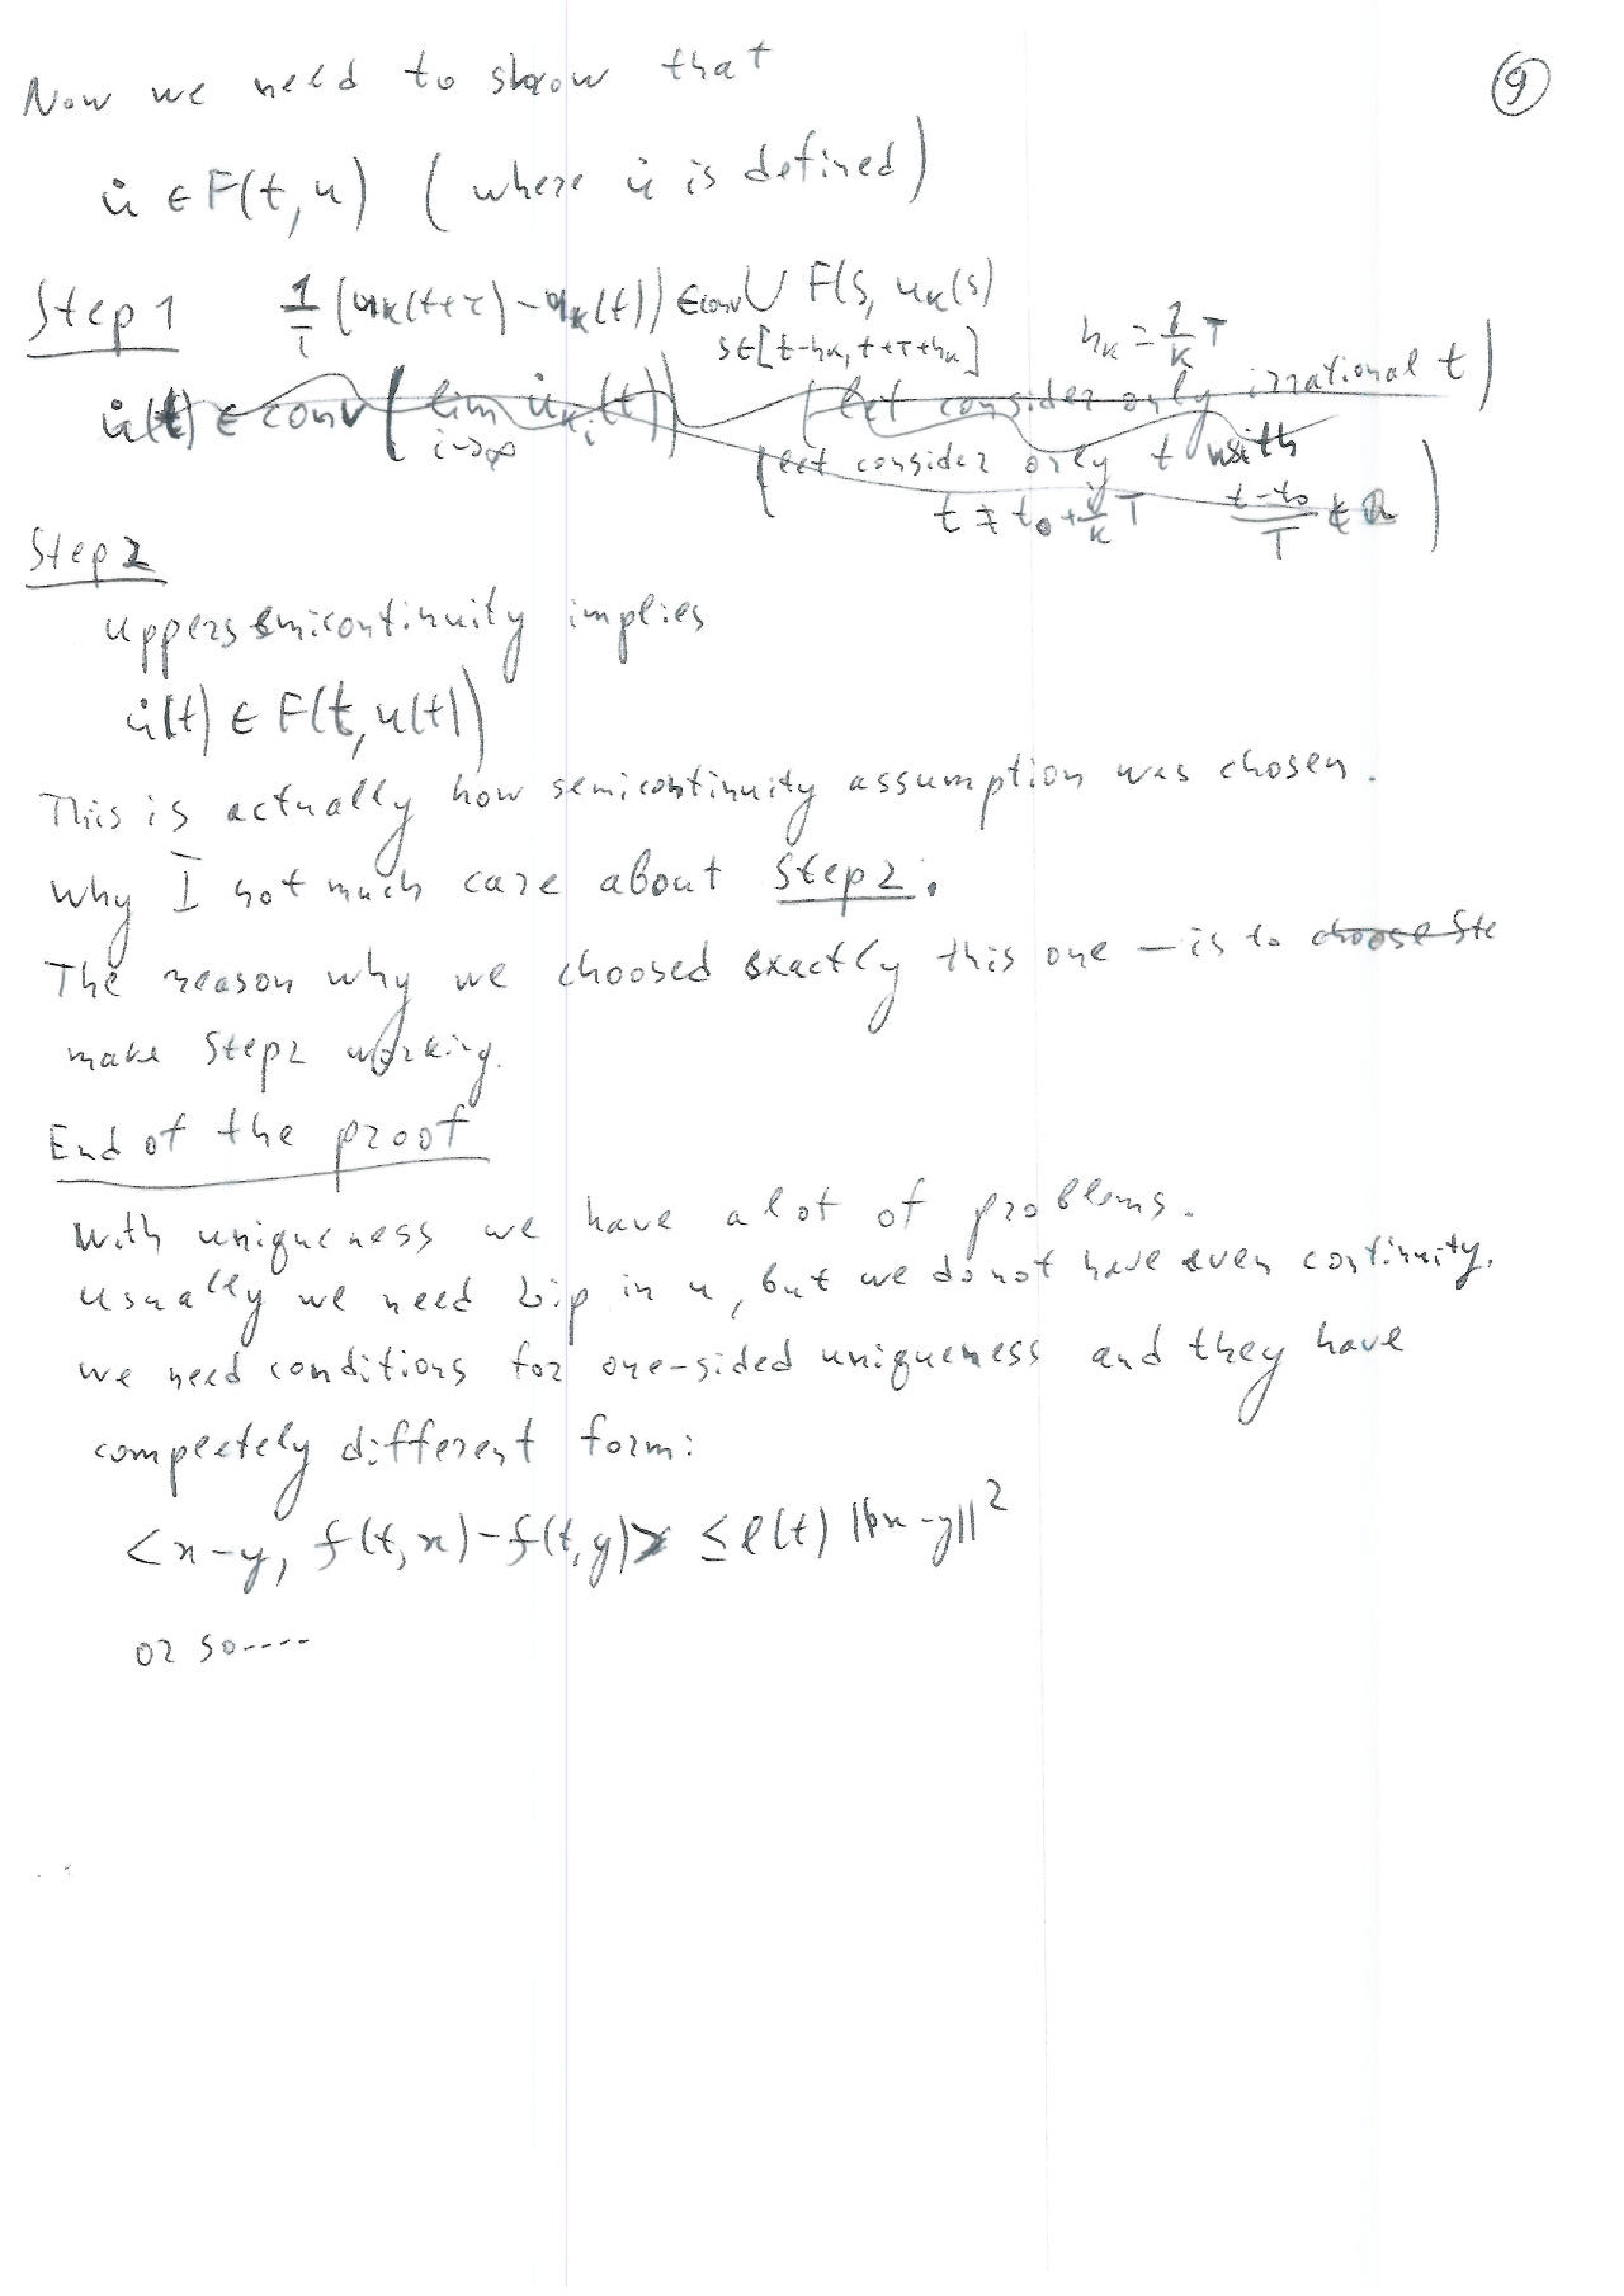 Now we need to show that
9
u̇ ∈ F(t, u) (where u̇ is defined)
Step 1 1/τ (u_k(t+τ) - u_k(t)) ∈ conv ∪ F(s, u_k(s)
s∈[t-h_k, t+τ+h_k] h_k = 1/k T
u̇(t) ∈ conv (lim u̇_{k_i}(t)) (let consider only irrational t)
i→∞
(let consider only t with
t ≠ t_0 + /k T (t-t_0)/T ∉ Q)
Step 2
uppersemicontinuity implies
u̇(t) ∈ F(t, u(t))
This is actually how semicontinuity assumption was chosen.
Why I not much care about Step 2.
The reason why we choosed exactly this one – is to choose Ste
make Step 2 working.
End of the proof
With uniqueness we have a lot of problems.
Usually we need Lip in u, but we do not have even continuity.
We need conditions for one-sided uniqueness and they have
completely different form:
<x-y, f(t,x) - f(t,y)> ≤ l(t) ||x-y||²
or so----